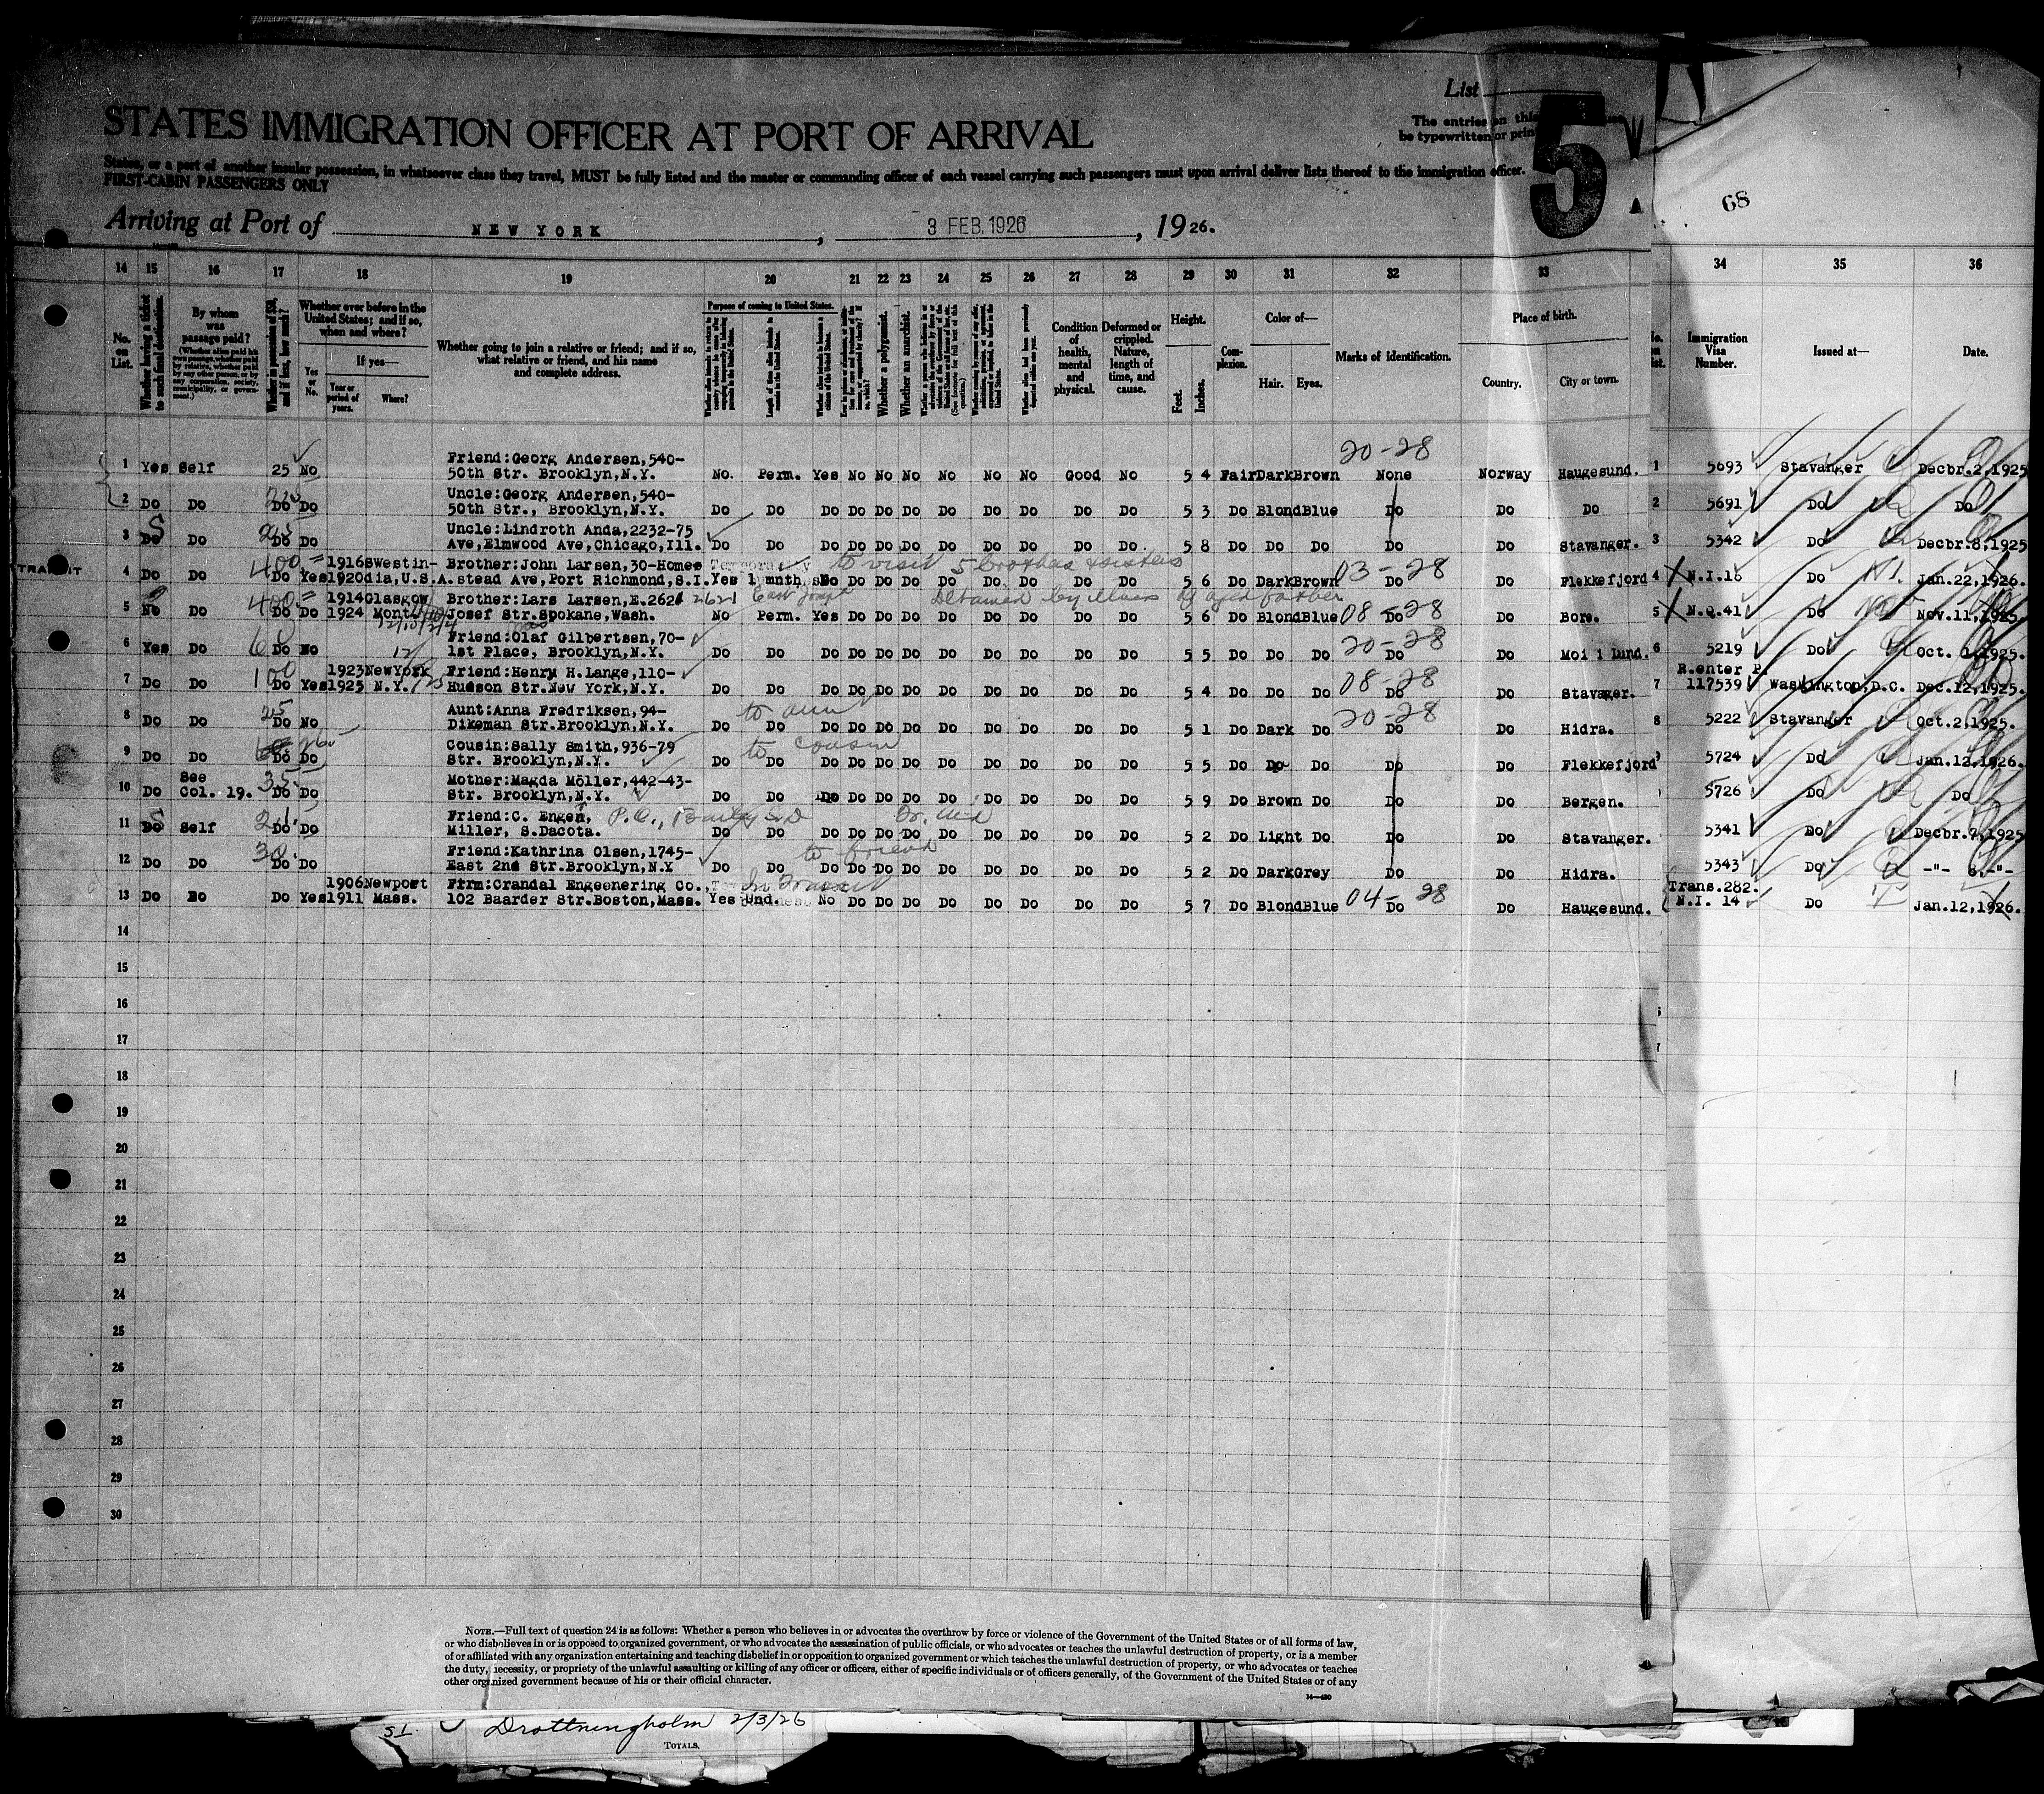 List
The entries on this
be typewritten or prin
5
STATES IMMIGRATION OFFICER AT PORT OF ARRIVAL
States, or a part of another insular possession, in whatsoever class they travel, MUST be fully listed and the master or commanding officer of each vessel carrying such passengers must upon arrival deliver lists thereof to the immigration officer.
FIRST-CABIN PASSENGERS ONLY
68
Arriving at Port of NEW YORK, 3 FEB. 1926, 1926.
14 15 16 17 18 19 20 21 22 23 24 25 26 27 28 29 30 31 32 33 34 35 36
No. on List.
Whether having a ticket to such final destination.
By whom was passage paid?
Whether ever before in the United States; and if so, when and where?
If yes—
Yes or No.
Year or period of years.
Where?
Whether going to join a relative or friend; and if so, what relative or friend, and his name and complete address.
Purpose of coming to United States.
Whether a polygamist.
Whether an anarchist.
Condition of health, mental and physical.
Deformed or crippled. Nature, length of time, and cause.
Height.
Feet. Inches.
Complexion.
Color of—
Hair. Eyes.
Marks of identification.
Place of birth.
Country. City or town.
Immigration Visa Number.
Issued at—
Date.
20-28
Friend:Georg Andersen,540-
1 Yes Self 25 No 50th Str. Brooklyn,N.Y. No. Perm. Yes No No No No No No Good No 5 4 Fair Dark Brown None Norway Haugesund. 1 5693 Stavanger Decbr.2,1925
Uncle:Georg Andersen,540-
2 Do Do Do Do 50th Str., Brooklyn,N.Y. Do Do Do Do Do Do Do Do Do Do Do 5 3 Do Blond Blue Do Do Do 2 5691 Do Do
Uncle:Lindroth Anda,2232-75
3 Do Do 25 Do Do Ave,Elmwood Ave,Chicago,Ill. Do Do Do Do Do Do Do Do Do Do Do 5 8 Do Do Do Do Do Stavanger. 3 5342 Do Decbr.8,1925
TRANSIT 400 1916 Swestin- Brother:John Larsen,30-Home- Temporary to visit 5 brothers & sisters 03-28
4 Do Do Do Yes 1920 dia,U.S.A. stead Ave,Port Richmond,S.I. Yes 1 mnths No Do Do Do Do Do Do Do Do 5 6 Do Dark Brown Do Do Flekkefjord 4 N.I.16 Do Jan.22,1926.
400 1914 Glasgow Brother:Lars Larsen,E.2621 2621 East Joseph Detained by illness of aged father 08-28
5 No Do Do Do 1924 Mont. Josef Str.Spokane,Wash. No Perm. Yes Do Do Do Do Do Do Do Do 5 6 Do Blond Blue Do Do Bore. 5 N.Q.41 Do Nov.11,1925
60 Friend:Olaf Gilbertsen,70- 20-28
6 Yes Do Do No 1st Place, Brooklyn,N.Y. Do Do Do Do Do Do Do Do Do Do Do 5 5 Do Do Do Do Do Moi i Lund. 6 5219 Do Oct. 1,1925.
100 1923 NewYork Friend:Henry H.Lange,110- 08-28 R.enter P.
7 Do Do Do Yes 1925 N.Y. Hudson Str.New York,N.Y. Do Do Do Do Do Do Do Do Do Do Do 5 4 Do Do Do Do Do Stavager. 7 117539 Washington,D.C. Dec.12,1925.
25 Aunt:Anna Fredriksen,94- to aunt 20-28
8 Do Do Do No Dikeman Str.Brooklyn,N.Y. Do Do Do Do Do Do Do Do Do Do Do 5 1 Do Dark Do Do Do Hidra. 8 5222 Stavanger Oct.2,1925.
Cousin:Sally Smith,936-79 to cousin
9 Do Do Do Do Str. Brooklyn,N.Y. Do Do Do Do Do Do Do Do Do Do Do 5 5 Do Do Do Do Do Flekkefjord 5724 Do Jan.12,1926.
See 35 Mother:Magda Möller,442-43-
10 Do Col. 19. Do Do Str. Brooklyn,N.Y. Do Do Do Do Do Do Do Do Do Do Do 5 9 Do Brown Do Do Do Bergen. 5726 Do Do
Friend:C. Engen, P.O.,
11 Do Self Do Do Miller, S.Dacota. Do Do Do Do Do Do Do Do Do Do Do 5 2 Do Light Do Do Do Stavanger. 5341 Do Decbr.7,1925
30 Friend:Kathrina Olsen,1745- to friend
12 Do Do Do Do East 2nd Str.Brooklyn,N.Y Do Do Do Do Do Do Do Do Do Do Do 5 2 Do Dark Grey Do Do Hidra. 5343 Do -"- 8.-"-
1906 Newport Firm:Crandal Engeenering Co., In Transit 04-28 Trans.282.
13 Do No Do Yes 1911 Mass. 102 Baarder Str.Boston,Mass. Yes Und. No Do Do Do Do Do Do Do Do 5 7 Do Blond Blue Do Do Haugesund. N.I. 14 Do Jan.12,1926.
14
15
16
17
18
19
20
21
22
23
24
25
26
27
28
29
30
NOTE.—Full text of question 24 is as follows: Whether a person who believes in or advocates the overthrow by force or violence of the Government of the United States or of all forms of law,
or who disbelieves in or is opposed to organized government, or who advocates the assassination of public officials, or who advocates or teaches the unlawful destruction of property, or is a member
of or affiliated with any organization entertaining and teaching disbelief in or opposition to organized government or which teaches the unlawful destruction of property, or who advocates or teaches
the duty, necessity, or propriety of the unlawful assaulting or killing of any officer or officers, either of specific individuals or of officers generally, of the Government of the United States or of any
other organized government because of his or their official character.
14—420
SI. Drottningholm 2/3/26
TOTALS.